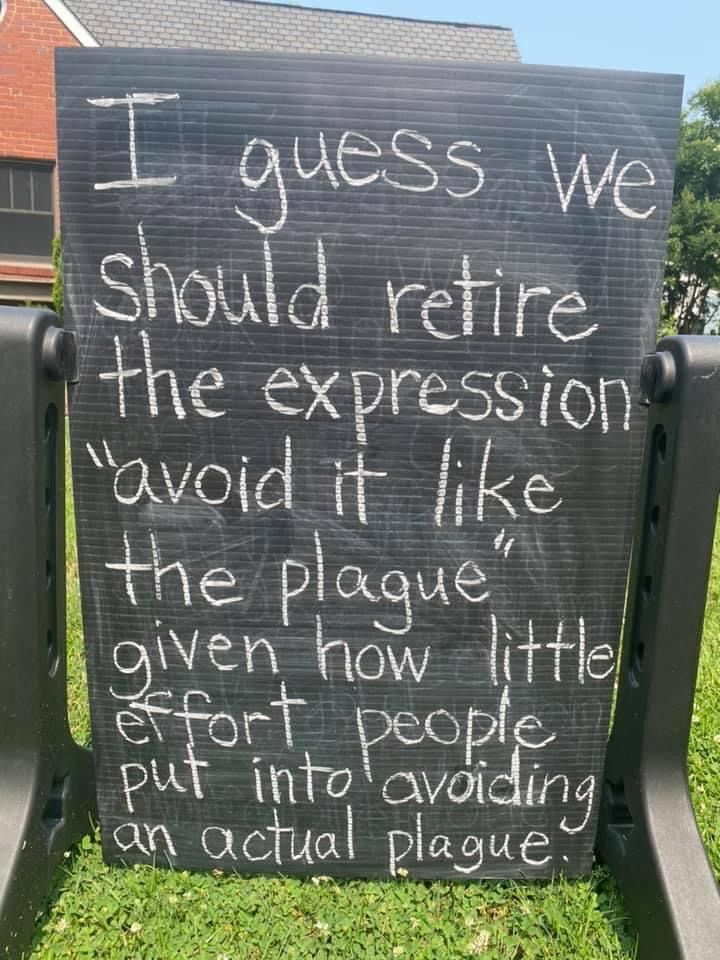 I guess we
should retire
the expression
"avoid it like
the plague"
given how little
effort people
put into avoiding
an actual plague.